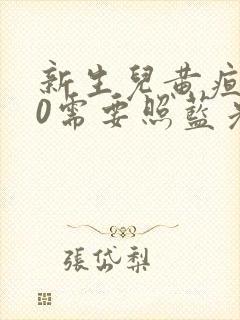 新生兒黃疸
0需要照藍光
張岱梨